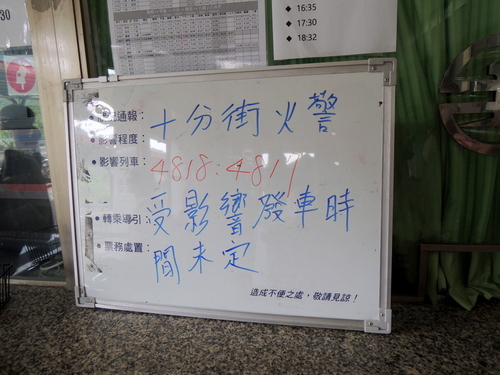 :30
16:35
17:30
18:32
通報： 十分街火警
影響程度：
影響列車： 4818. 4811
轉乘導引： 受影響發車時
票務處置： 間未定
造成不便之處，敬請見諒！